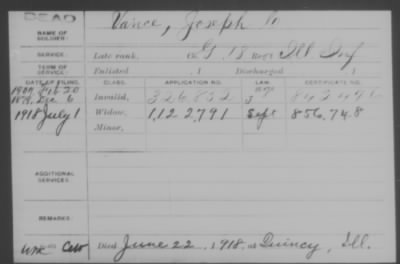 DEAD
NAME OF SOLDIER: Vance, Joseph
SERVICE: Late rank, Co. G, 18 Reg't Ill Inf
TERM OF SERVICE: Enlisted 1 Discharged 1
DATE OF FILING. CLASS. APPLICATION NO. LAW. CERTIFICATE NO.
Feb 20
Dec 6 Invalid,
1918 July 1 Widow, 1,122,791 Sept 856,748
Minor,
ADDITIONAL SERVICES:
REMARKS:
Died June 22, 1918, at Quincy, Ill.